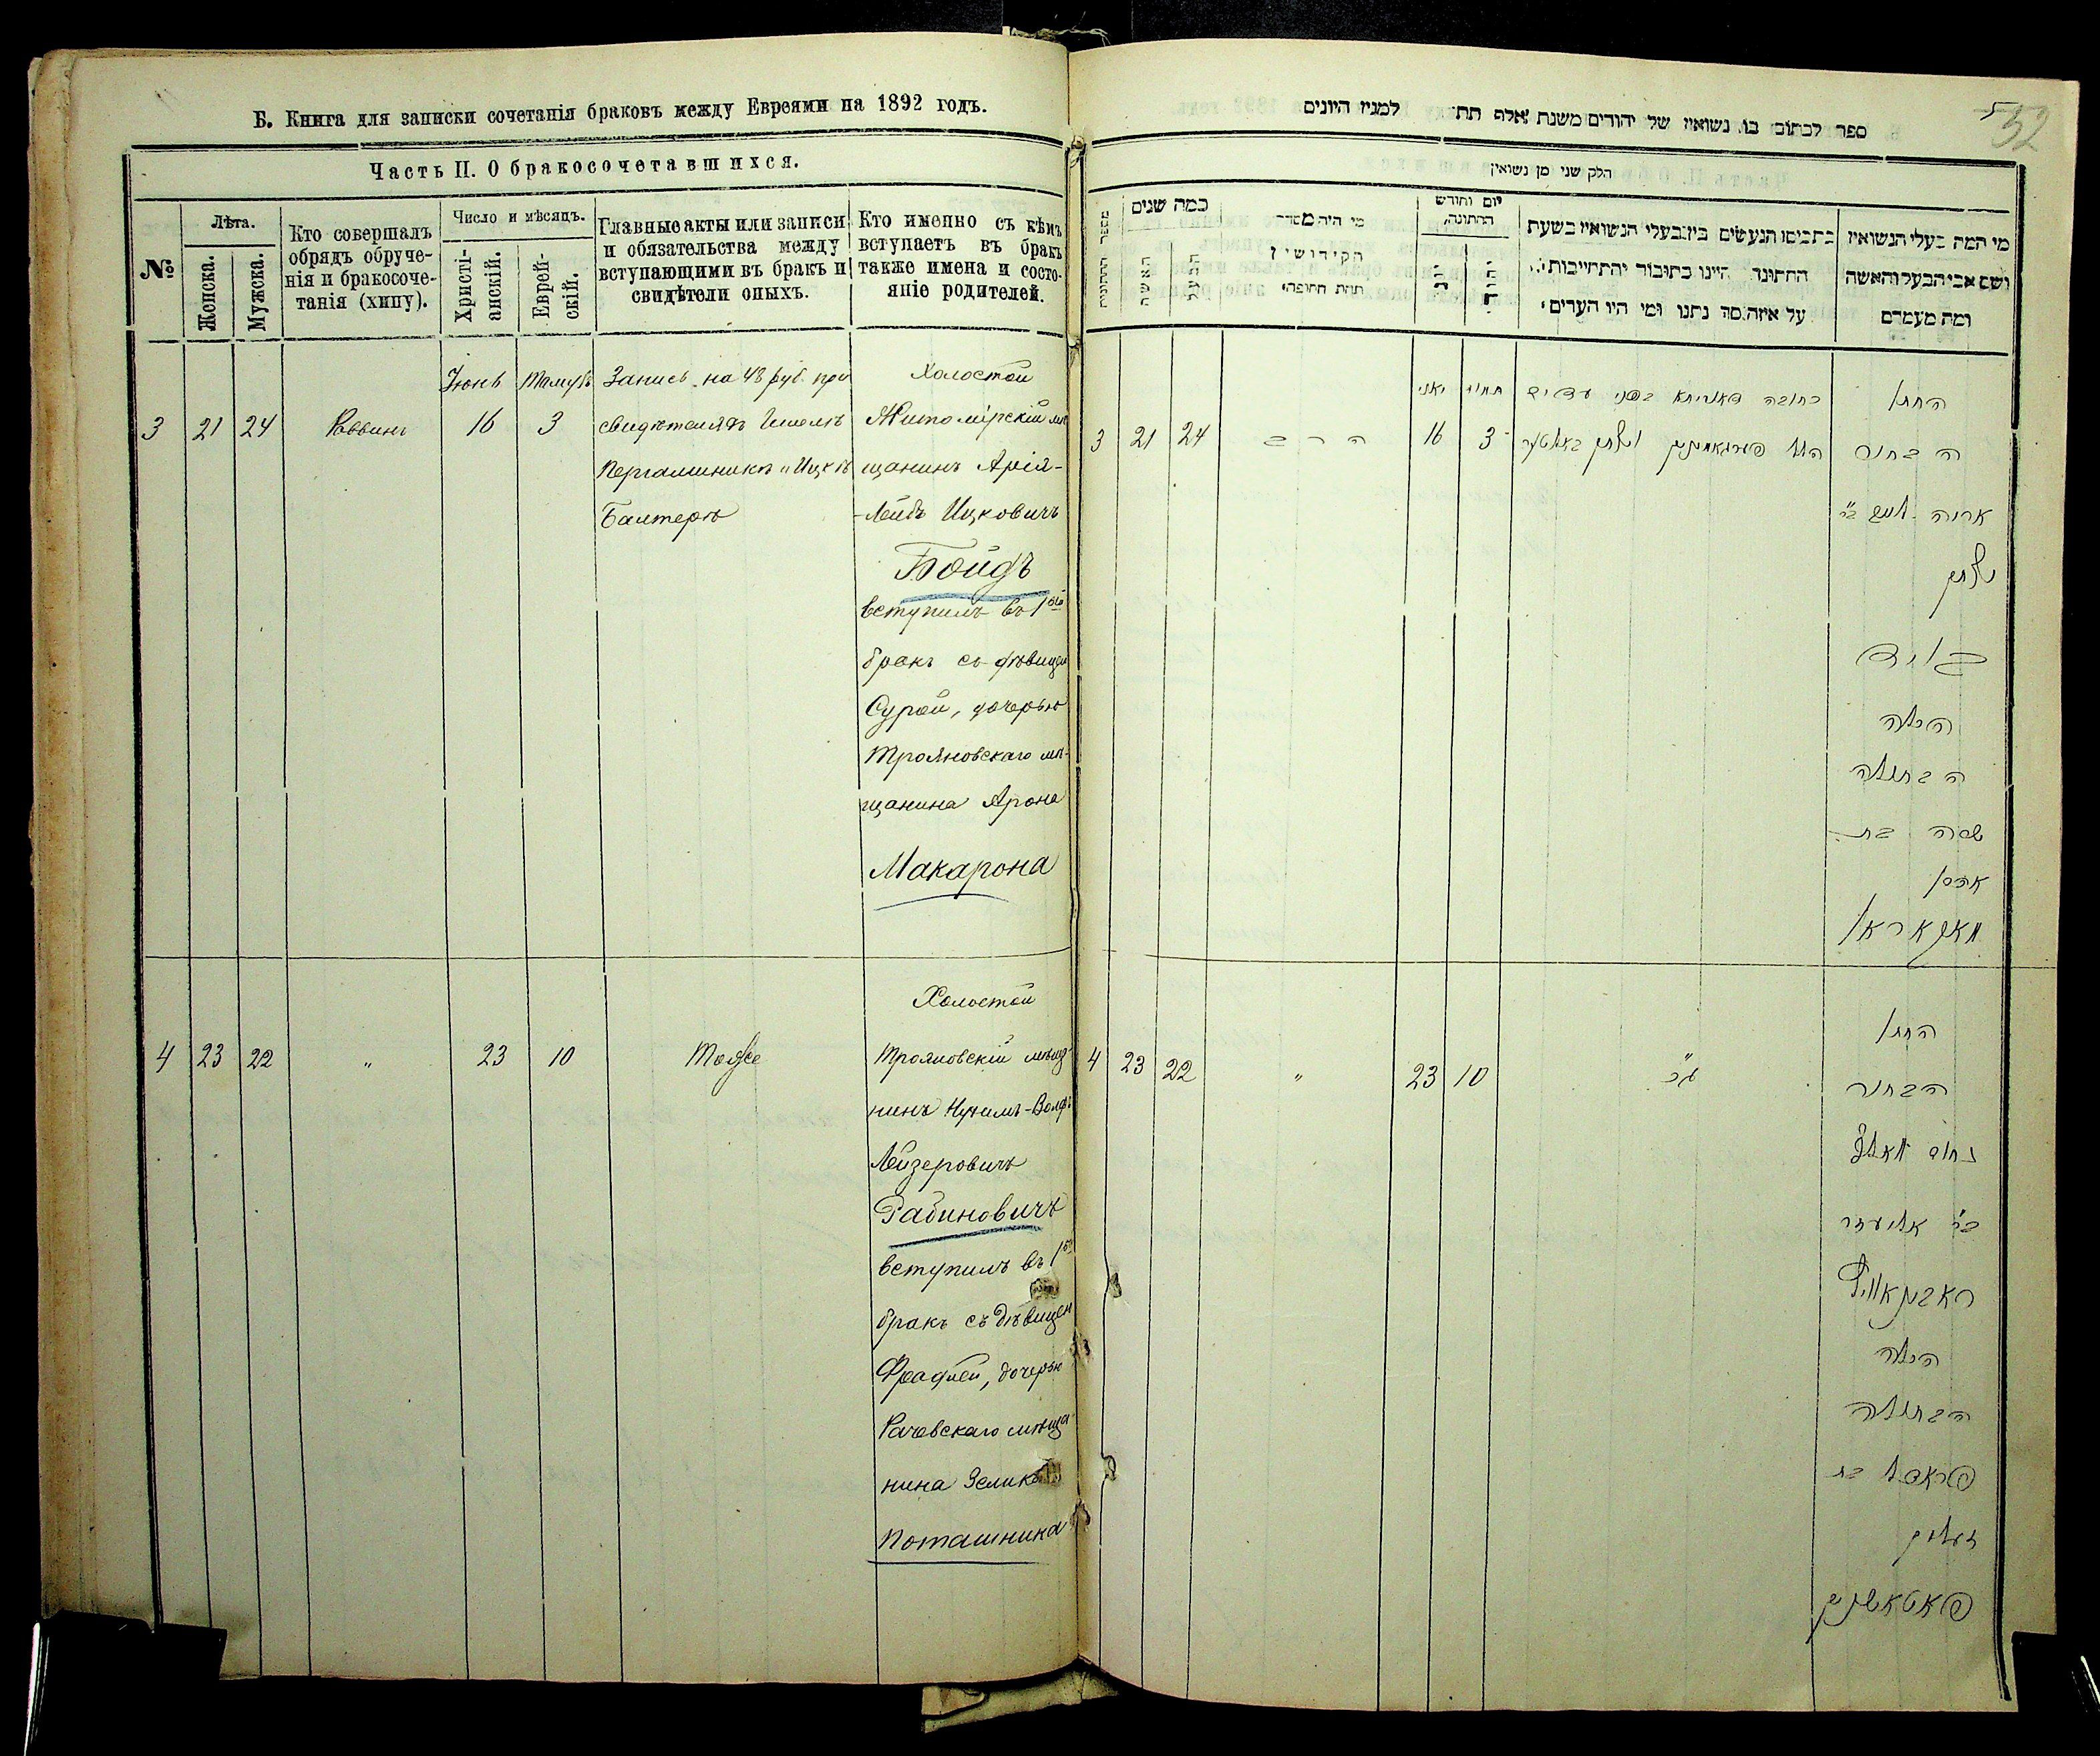 Б. Книга для записки сочетанія браковъ между Евреями на 1892 годъ.
Часть II. О бракосочетавшихся.
№
Лѣта.
Женска.
Мужска.
Кто совершалъ
обрядъ обруче-
нія и бракосоче-
танія (хипу).
Число и мѣсяцъ.
Христі-
анскій.
Еврей-
скій.
Главные акты или записи
и обязательства между
вступающими въ бракъ и
свидѣтели оныхъ.
Кто именно съ кѣмъ
вступаетъ въ бракъ
также имена и состо-
яніе родителей.
Іюнь Тамузъ Запись на 48 руб. при Холостой
3 21 24 Раввинъ 16 3 свидѣтеляхъ Житомірскій мѣ-
Пергаменикъ и Ицкъ щанинъ Арія-
Балтеръ -Лейбъ Ицковичъ
Бойдъ
вступилъ въ 1ый
бракъ съ дѣвицей
Сурой, дочерью
Трояновскаго мѣ-
щанина Арона
Макарона
Холостой
4 23 22 " 23 10 Тоже Трояновскій мѣща-
нинъ Нухимъ-Волфъ
Лейзеровичъ
Рабиновичъ
вступилъ въ 1ый
бракъ съ дѣвицей
Фрадлей, дочерью
Рачевскаго мѣща-
нина Зелика
Поташника
52
ספר לכתוב בו נשואין של יהודים משנת אלף תת למנין היונים
חלק שני מן נשואין
מספר החתונות
כמה שנים
האשה
הבעל
מי היה מסדר
הקידושין
תחת החופה
יום וחודש
החתונה
יוני
יהודי
כתבים הנעשים בין בעלי הנשואין בשעת
החתונה היינו כתובה והתחייבות
על איזה סך נתנו ומי היו העדים
מי המה בעלי הנשואין
ושם אבי הבעל והאשה
ומה מעמדם
יאני תמוז כתובה דאוריתא בפני עדים החתן
3 21 24 הרב 16 3 הבחור
אריה ליב ב״ר
יצחק
בויד
הכלה
הבתולה
שרה בת
אהרן
מאקאראן
החתן
4 23 22 " 23 10 הבחור
נחום וואלף
ב״ר אליעזר
ראבינאוויץ
הכלה
הבתולה
פראדל בת
זעליק
פאטאשניק